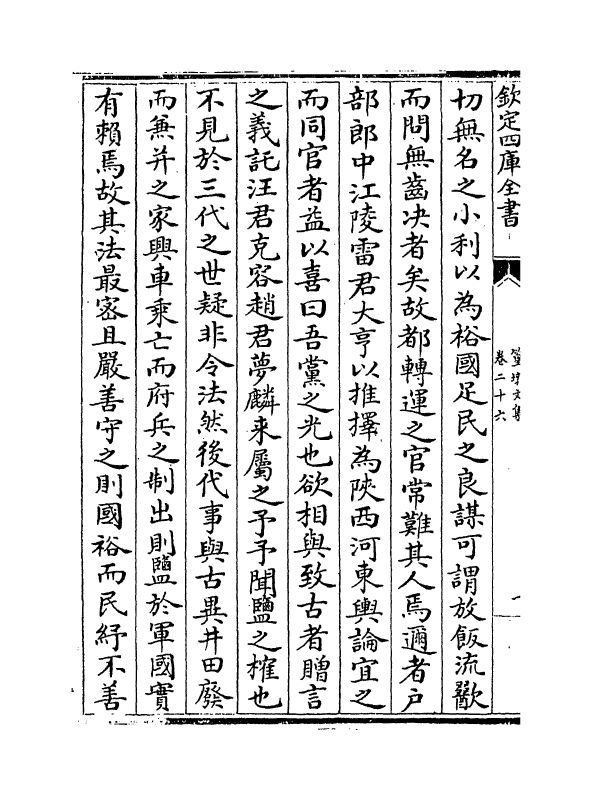 欽定四庫全書
篁墩文集
卷二十六
一
切無名之小利以為裕國足民之良謀可謂放飯流歠
而問無齒决者矣故都轉運之官常難其人焉邇者户
部郎中江陵雷君大亨以推擇為陜西河東輿論宜之
而同官者益以喜曰吾黨之光也欲相與致古者贈言
之義託汪君克容趙君夢麟来屬之予予聞鹽之榷也
不見於三代之世疑非令法然後代事與古異井田廢
而兼并之家興車乘亡而府兵之制出則鹽於軍國實
有賴焉故其法最宻且嚴善守之則國裕而民紓不善